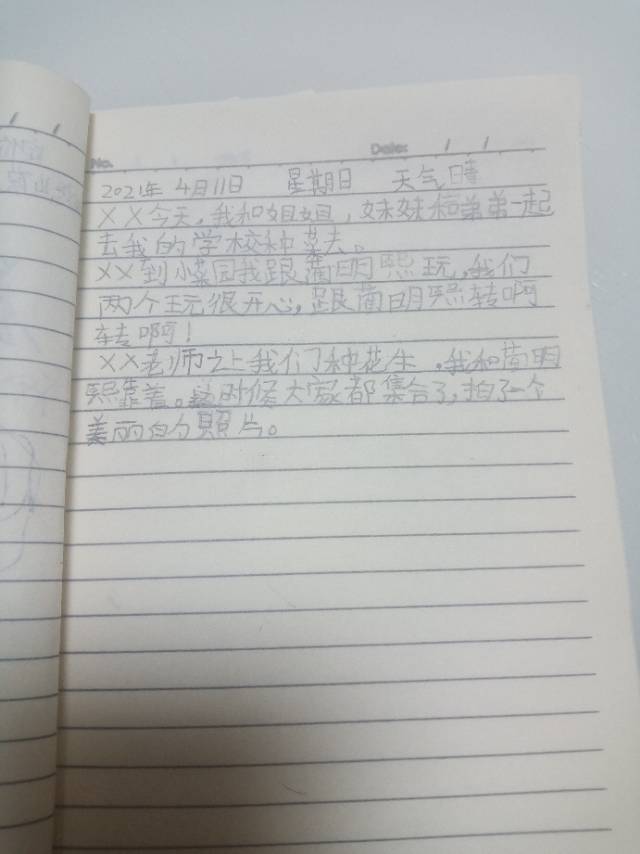 No. Date: / /
2021年 4月11日 星期日 天气晴
××今天,我和姐姐,妹妹和弟弟一起
去我的学校种菜去。
××到菜园我跟蔺明熙玩,我们
两个玩很开心,跟蔺明熙转啊
转啊!
××老师让我们种花生,我和蔺明
熙靠着。这时候大家都集合了,拍了一个
美丽的照片。